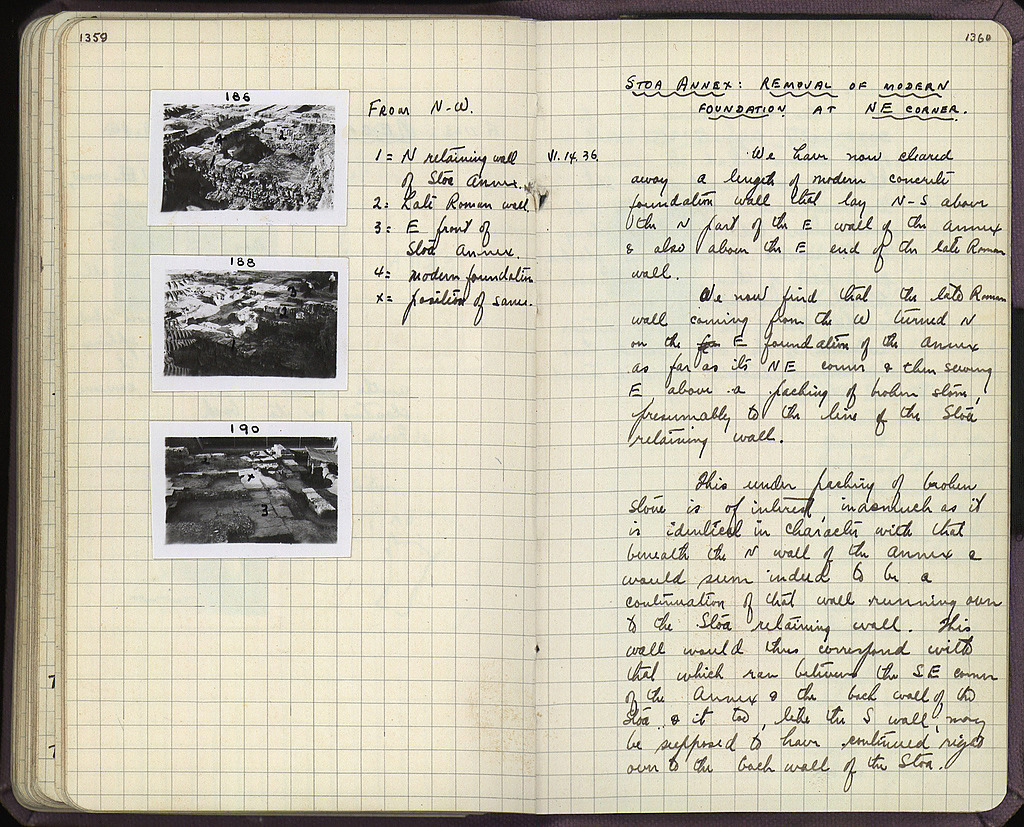 1359
186
188
190
3
FROM N-W.
1 = N retaining wall
of Stoa Annex.
2 = Late Roman wall
3 = E front of
Stoa Annex.
4 = modern foundation
x = position of same.
1360
STOA ANNEX: REMOVAL OF MODERN
FOUNDATION AT NE CORNER.
VI.14.36.
We have now cleared
away a length of modern concrete
foundation wall that lay N-S above
the N part of the E wall of the Annex
& also above the E end of the late Roman
wall.
We now find that the late Roman
wall coming from the W turned N
on the E foundation of the Annex
as far as its NE corner & then swung
E above a packing of broken stone,
presumably to the line of the Stoa
retaining wall.
This under packing of broken
stone is of interest, inasmuch as it
is identical in character with that
beneath the N wall of the Annex &
would seem indeed to be a
continuation of that wall running over
to the Stoa retaining wall. This
wall would thus correspond with
that which ran between the SE corner
of the Annex & the back wall of the
Stoa & it too, like the S wall, may
be supposed to have continued right
over to the back wall of the Stoa.